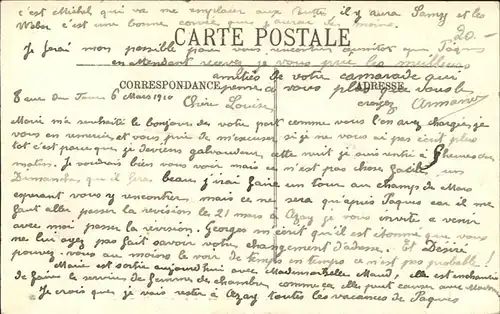 c'est Michel qui va me remplacer aux Butte il y aura Samy et les
Weber c'est une bonne corvée que j'aurai de moins.
20.-
CARTE POSTALE
Je ferai mon possible pour vous rencontrer aussitôt que Pâques
en attendant recevez je vous prie les meilleurs
amitiés de votre camarade qui
CORRESPONDANCE
ADRESSE
pense à vous plus que vous le
croyez Armand
Tour du 6 Mars 1910 Chère Louise
Marie m'a souhaité le bonjour de votre part comme vous l'en avez chargée, je
vous en remercie et vous prie de m'excuser si je ne vous ai pas écrit plus
tot c'est parce que je deviens galvaudeur, cette nuit je suis rentré à heures du
matin. Je voudrais bien vous voir mais ce n'est pas chose facile, un
Dimanche qu'il fera beau j'irai faire un tour au champs de Mars
esperant vous y rencontrer, mais ce ne sera qu'après Pâques car il me
faut aller passer la revision le 21 mars à Azay je vous invite a venir
avec moi passer la revision. Georges m'écrit qu'il est étonné que vous
ne lui ayez pas fait savoir votre changement d'adresse. Et Desiré
pouvez-vous au moins le voir de temps en temps ce n'est pas probable!
Marie est sortie aujourd'hui avec Mademoiselle Maud, elle est enchantée
de faire le service de femme de chambre, comme ça elle peut causer avec
Je crois que je vais rester à Azay toutes les vacances de Pâques